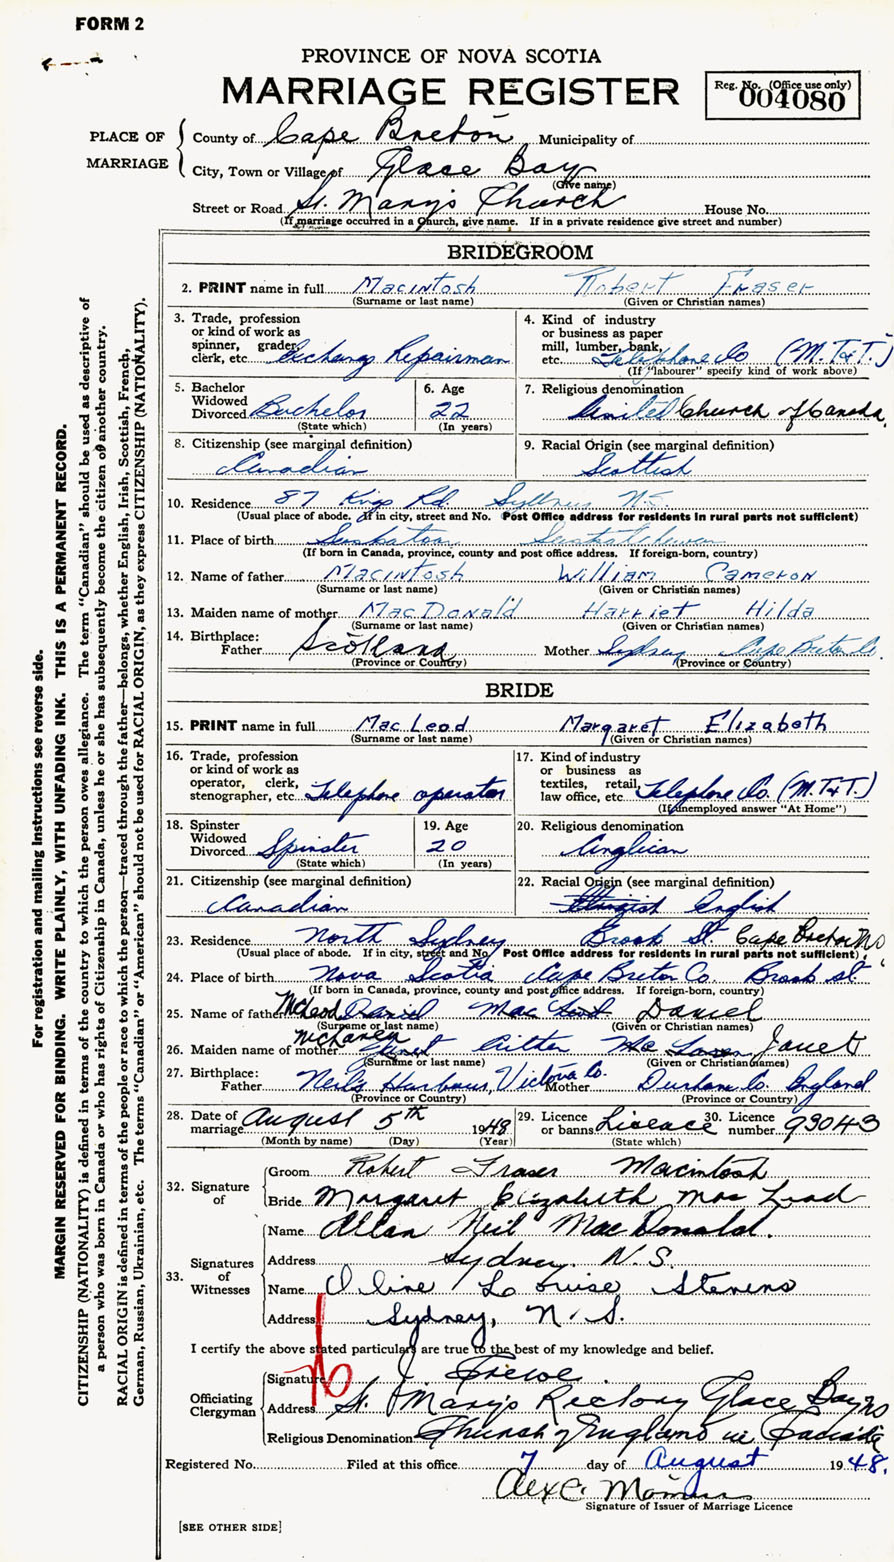 FORM 2
PROVINCE OF NOVA SCOTIA
MARRIAGE REGISTER
Reg. No. (Office use only)
004080
PLACE OF MARRIAGE
County of Cape Breton Municipality of
City, Town or Village of Glace Bay
(Give name)
Street or Road St. Mary's Church House No.
(If marriage occurred in a Church, give name. If in a private residence give street and number)
BRIDEGROOM
2. PRINT name in full MacIntosh Robert Fraser
(Surname or last name) (Given or Christian names)
3. Trade, profession or kind of work as spinner, grader, clerk, etc. Exchange Repairman
4. Kind of industry or business as paper mill, lumber, bank, etc. Telephone Co (M.T.&T.)
(If "labourer" specify kind of work above)
5. Bachelor Widowed Divorced Bachelor
(State which)
6. Age 22
(In years)
7. Religious denomination
United Church of Canada.
8. Citizenship (see marginal definition)
Canadian
9. Racial Origin (see marginal definition)
Scottish
10. Residence 87 Kings Rd Sydney N.S.
(Usual place of abode. If in city, street and No. Post Office address for residents in rural parts not sufficient)
11. Place of birth Saskatoon Saskatchewan
(If born in Canada, province, county and post office address. If foreign-born, country)
12. Name of father MacIntosh William Cameron
(Surname or last name) (Given or Christian names)
13. Maiden name of mother MacDonald Harriet Hilda
(Surname or last name) (Given or Christian names)
14. Birthplace:
Father Scotland Mother Sydney Cape Breton Co.
(Province or Country) (Province or Country)
BRIDE
15. PRINT name in full MacLeod Margaret Elizabeth
(Surname or last name) (Given or Christian names)
16. Trade, profession or kind of work as operator, clerk, stenographer, etc. Telephone operator
17. Kind of industry or business as textiles, retail, law office, etc. Telephone Co. (M.T.&T.)
(If unemployed answer "At Home")
18. Spinster Widowed Divorced Spinster
(State which)
19. Age 20
(In years)
20. Religious denomination
Anglican
21. Citizenship (see marginal definition)
Canadian
22. Racial Origin (see marginal definition)
English
23. Residence North Sydney Brook St. Cape Breton NS
(Usual place of abode. If in city, street and No. Post Office address for residents in rural parts not sufficient)
24. Place of birth Nova Scotia Cape Breton Co. Brook St
(If born in Canada, province, county and post office address. If foreign-born, country)
25. Name of father McLeod Daniel Mac Daniel
(Surname or last name) (Given or Christian names)
26. Maiden name of mother Janet
(Surname or last name) (Given or Christian names)
27. Birthplace:
Father Neil's Harbour, Victoria Co. Mother Durham Co. England
(Province or Country) (Province or Country)
28. Date of marriage August 5th 1948
(Month by name) (Day) (Year)
29. Licence or banns Licence
(State which)
30. Licence number 93043
32. Signature of
Groom Robert Fraser Macintosh
Bride Margaret Elizabeth MacLeod
33. Signatures of Witnesses
Name Allan Neil MacDonald.
Address Sydney, N.S.
Name Oline Louise Stevens
Address Sydney, N.S.
I certify the above stated particulars are true to the best of my knowledge and belief.
Officiating Clergyman
Signature J. Frewe
Address St. Mary's Rectory Glace Bay NS
Religious Denomination Church of England in Canada
Registered No. Filed at this office 7 day of August 1948.
Alex C.
Signature of Issuer of Marriage Licence
[SEE OTHER SIDE]
For registration and mailing instructions see reverse side.
MARGIN RESERVED FOR BINDING. WRITE PLAINLY, WITH UNFADING INK. THIS IS A PERMANENT RECORD.
CITIZENSHIP (NATIONALITY) is defined in terms of the country to which the person owes allegiance. The term "Canadian" should be used as descriptive of
a person who was born in Canada or who has rights of Citizenship in Canada, unless he or she has subsequently become the citizen of another country.
RACIAL ORIGIN is defined in terms of the people or race to which the person—traced through the father—belongs, whether English, Irish, Scottish, French,
German, Russian, Ukrainian, etc. The terms "Canadian" or "American" should not be used for RACIAL ORIGIN, as they express CITIZENSHIP (NATIONALITY).